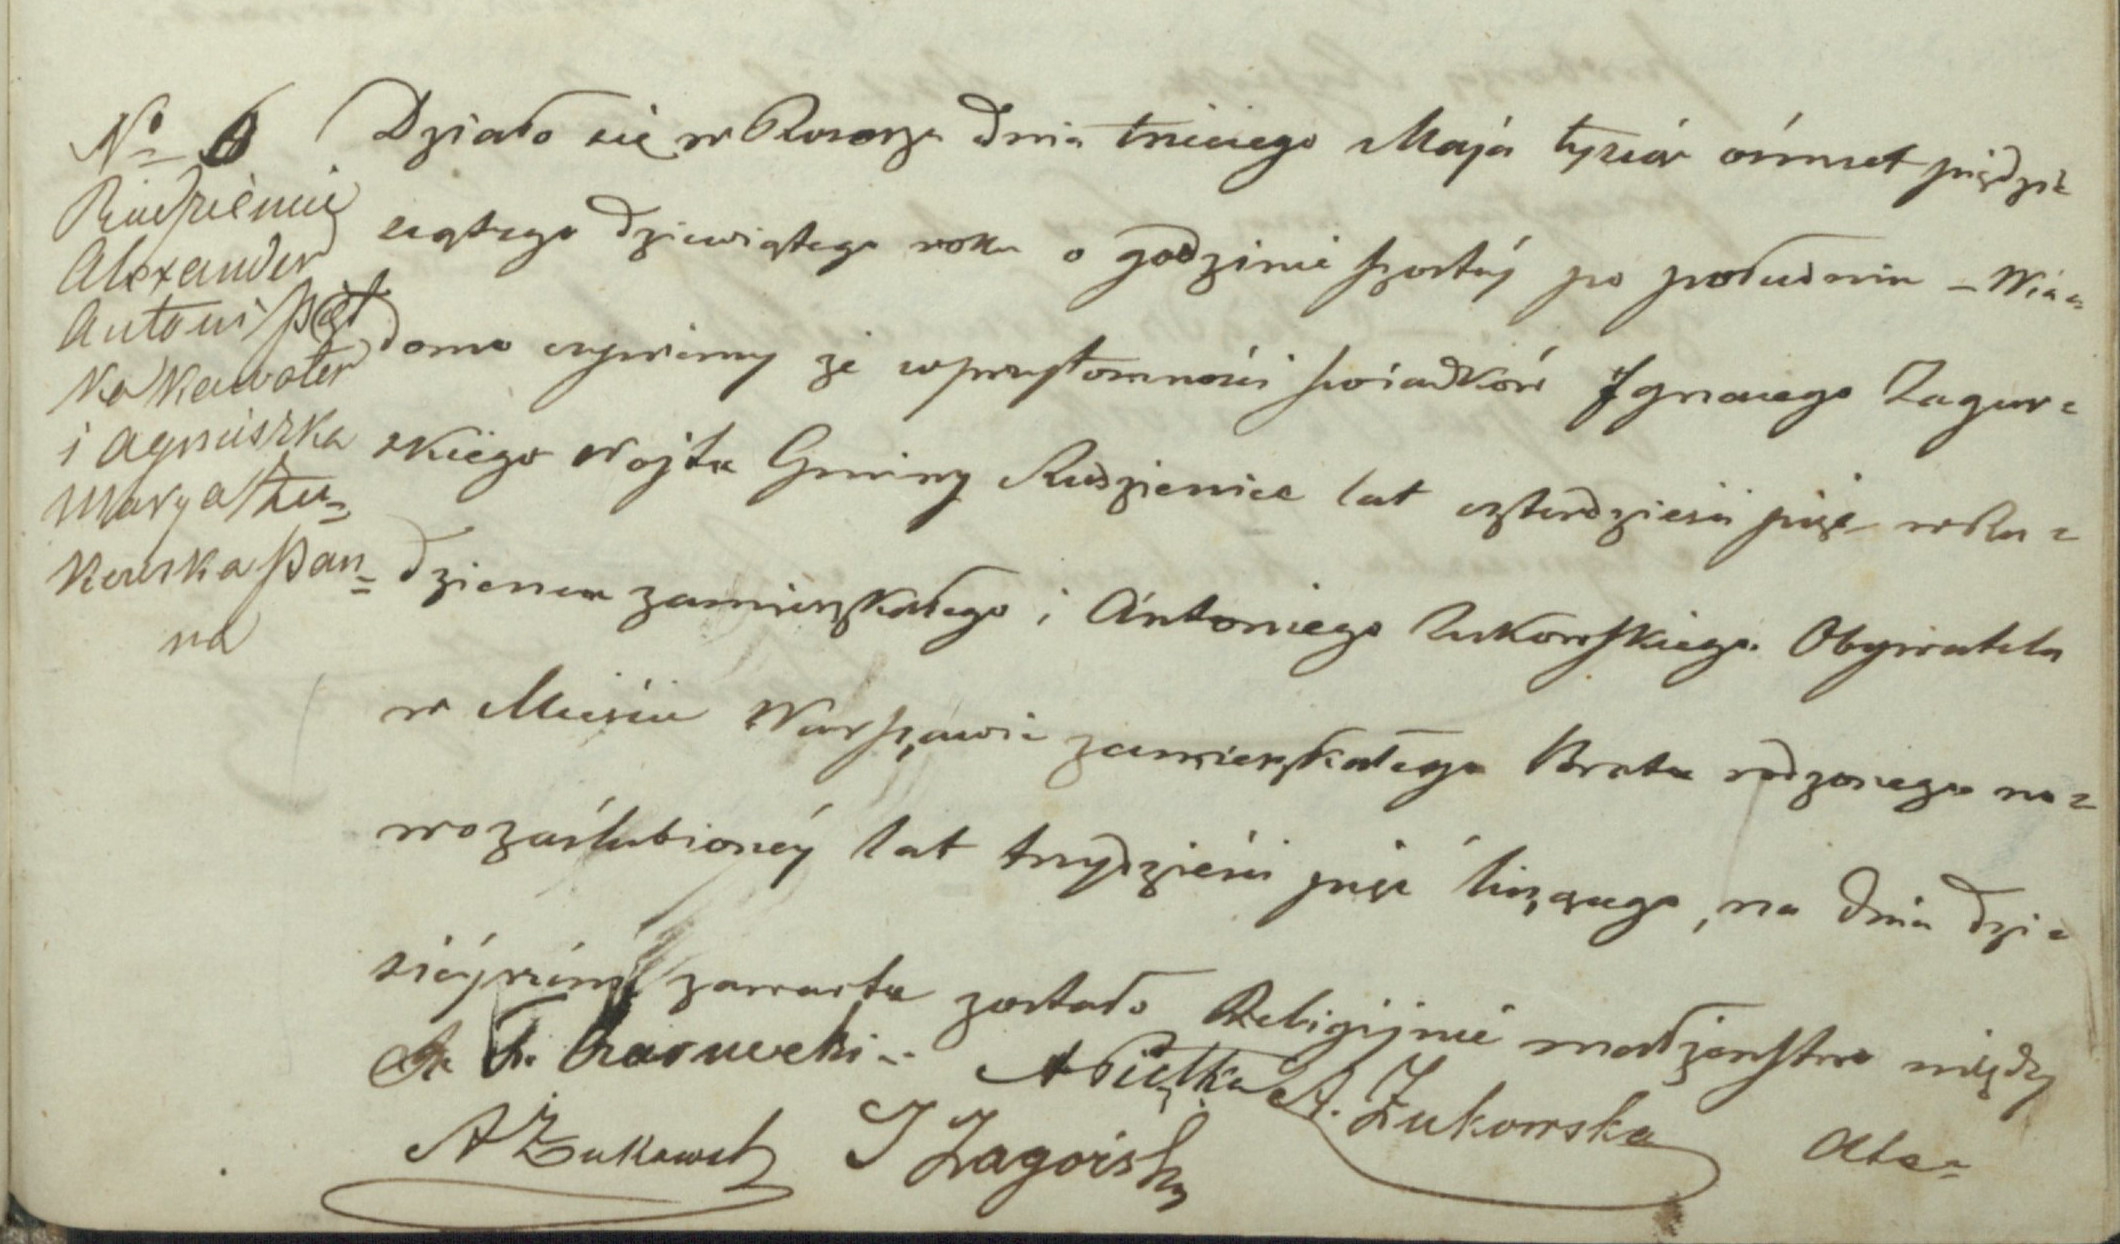 No 6
Rudzienie
Alexander
Antoni Pąt
ka kawaler
i Agniszka
Marya Żu=
kowska pan=
na
Działo się w Rososzy dnia trzeciego Maja tysiąc ośmset pięćdzie
siątego dziewiątego roku o godzinie szóstéj po południu – Wia=
domo czyniemy że w przytomności świadków Ignacego Zagur=
skiego Wojta Gminy Rudzienice lat czterdzieści pięć w Ru=
dziencu zamieszkałego i Antoniego Żukowskiego Obywatela
w Mieście Warszawie zamieszkałego Brata rodzonego no=
wozaślubionéj lat trzydzieści pięć liczącego, na dniu dzi=
siéjszém zawarte zostało Religijnie małżeństwo między
A Piętka A. Żukowska
A Żukowski I Zagórski
Ale=